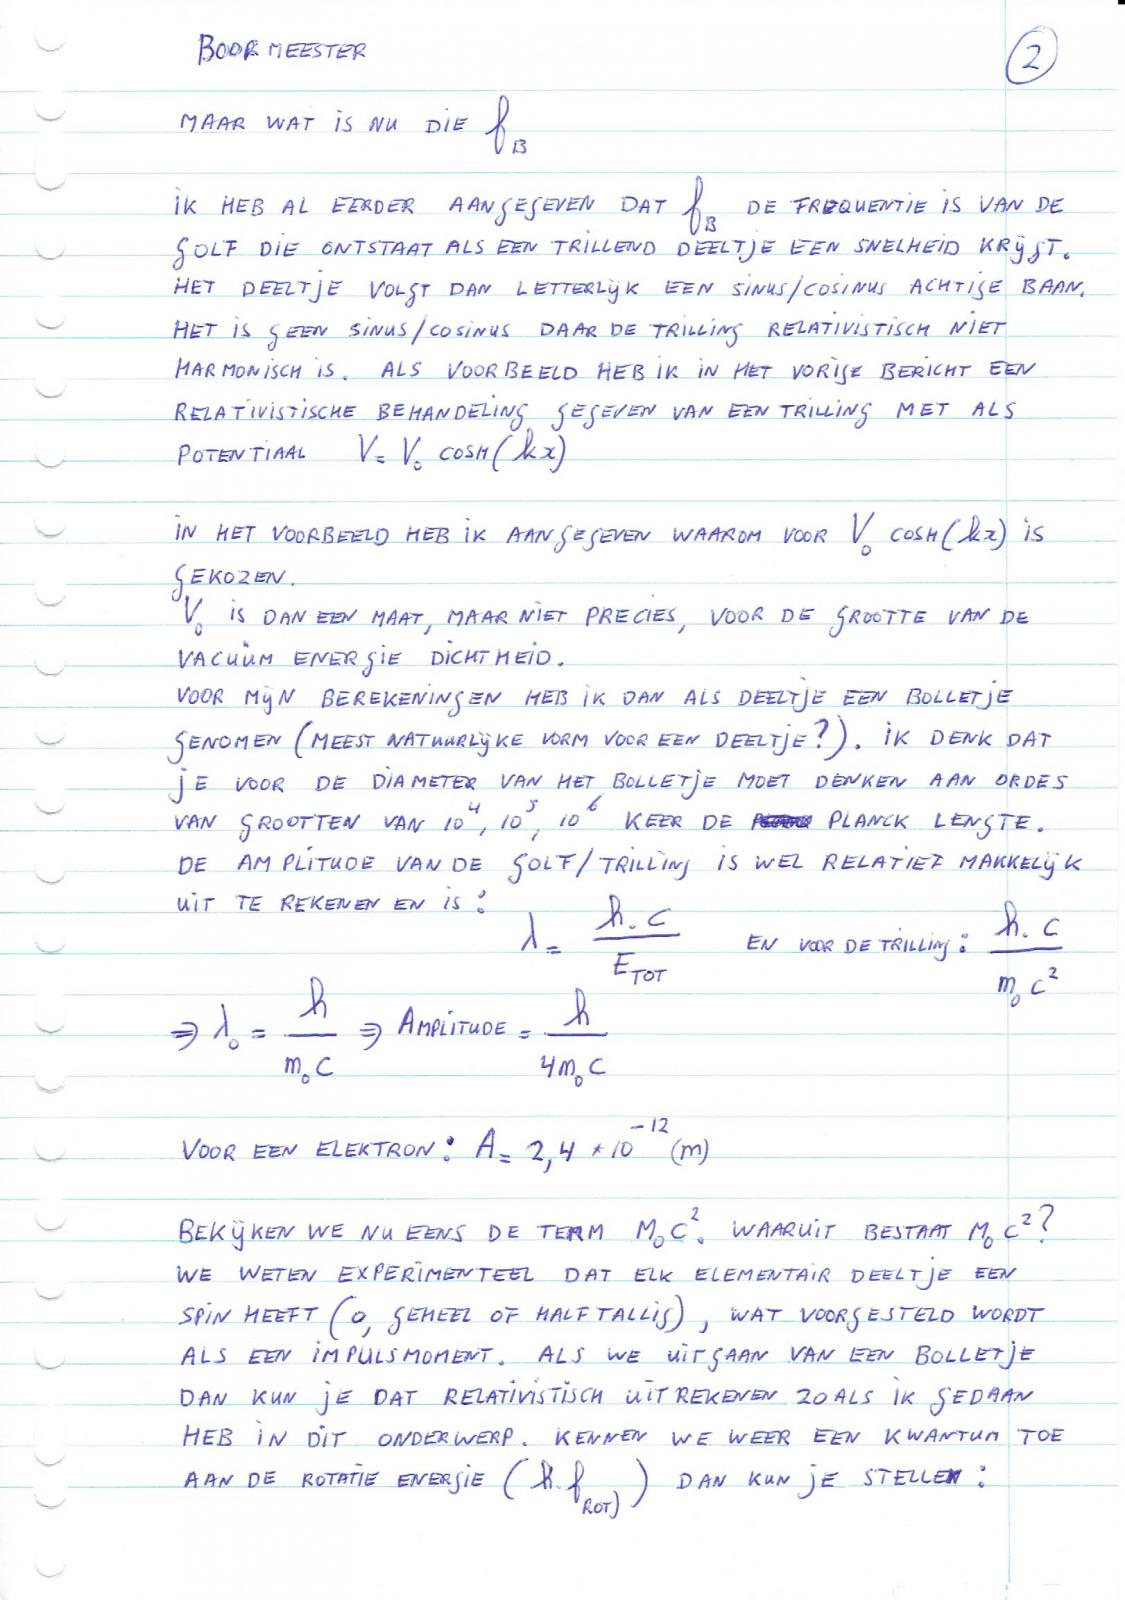 BOORMEESTER
2
MAAR WAT IS NU DIE f_B
IK HEB AL EERDER AANGEGEVEN DAT f_B DE FREQUENTIE IS VAN DE
GOLF DIE ONTSTAAT ALS EEN TRILLEND DEELTJE EEN SNELHEID KRIJGT.
HET DEELTJE VOLGT DAN LETTERLIJK EEN SINUS/COSINUS ACHTIGE BAAN.
HET IS GEEN SINUS/COSINUS DAAR DE TRILLING RELATIVISTISCH NIET
HARMONISCH IS. ALS VOORBEELD HEB IK IN HET VORIGE BERICHT EEN
RELATIVISTISCHE BEHANDELING GEGEVEN VAN EEN TRILLING MET ALS
POTENTIAAL V = V₀ COSH(kx)
IN HET VOORBEELD HEB IK AANGEGEVEN WAAROM VOOR V₀ COSH(kx) IS
GEKOZEN.
V₀ IS DAN EEN MAAT, MAAR NIET PRECIES, VOOR DE GROOTTE VAN DE
VACUÜM ENERGIE DICHTHEID.
VOOR MIJN BEREKENINGEN HEB IK DAN ALS DEELTJE EEN BOLLETJE
GENOMEN (MEEST NATUURLIJKE VORM VOOR EEN DEELTJE?). IK DENK DAT
JE VOOR DE DIAMETER VAN HET BOLLETJE MOET DENKEN AAN ORDES
VAN GROOTTEN VAN 10⁴, 10⁵, 10⁶ KEER DE PLANCK LENGTE.
DE AMPLITUDE VAN DE GOLF/TRILLING IS WEL RELATIEF MAKKELIJK
UIT TE REKENEN EN IS:
λ = h.c / E_TOT EN VOOR DE TRILLING: h.c / m₀c²
⇒ λ₀ = h / m₀c ⇒ AMPLITUDE = h / 4m₀c
VOOR EEN ELEKTRON: A = 2,4 * 10⁻¹² (m)
BEKIJKEN WE NU EENS DE TERM M₀C². WAARUIT BESTAAT M₀C²?
WE WETEN EXPERIMENTEEL DAT ELK ELEMENTAIR DEELTJE EEN
SPIN HEEFT (0, GEHEEL OF HALFTALLIG), WAT VOORGESTELD WORDT
ALS EEN IMPULSMOMENT. ALS WE UITGAAN VAN EEN BOLLETJE
DAN KUN JE DAT RELATIVISTISCH UITREKENEN ZOALS IK GEDAAN
HEB IN DIT ONDERWERP. KENNEN WE WEER EEN KWANTUM TOE
AAN DE ROTATIE ENERGIE (h.f_ROT)) DAN KUN JE STELLEN: